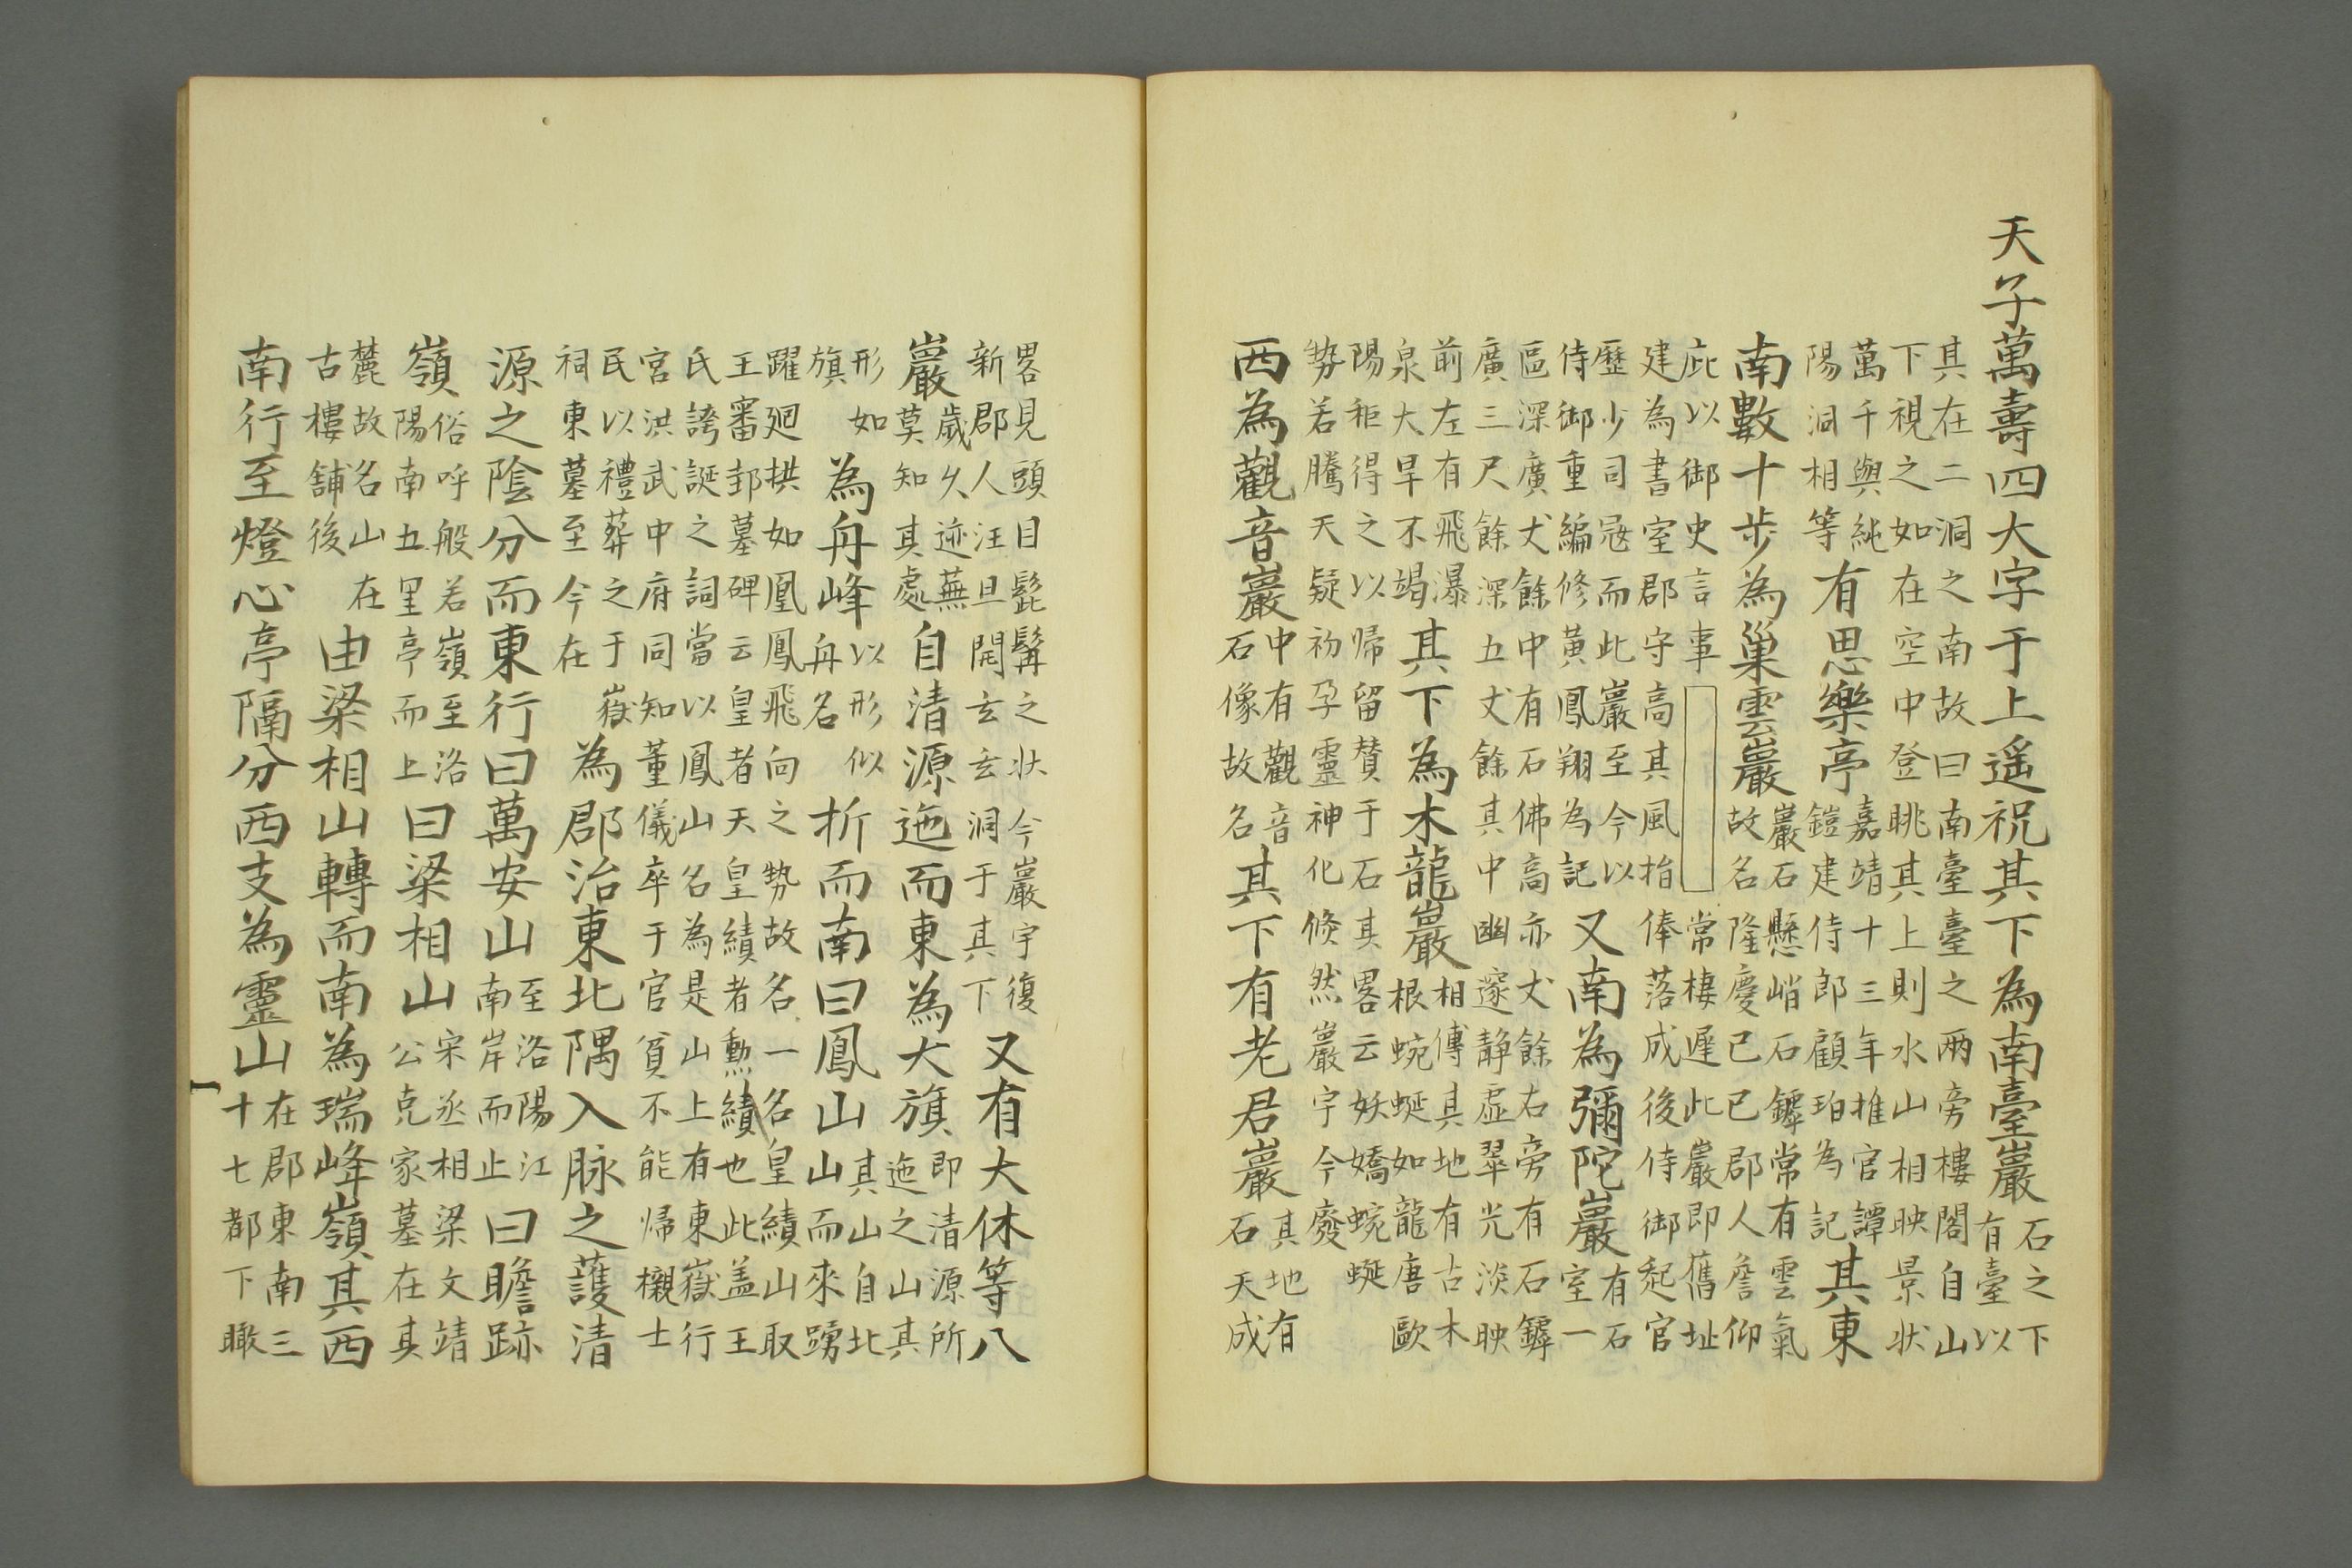 天子萬壽四大字于上遥祝其下為南臺巖石之下有臺以
其在二洞之南故曰南臺臺之兩旁樓閣自山
下視之如在空中登眺其上則水山相映景状
萬千與純陽洞相等有思樂亭嘉靖十三年推官譚鎧建侍郎顧珀為記其東
南數十步為巢雲巖巖石懸峭石罅常有雲氣故名隆慶已巳郡人詹仰
庇以御史言事常棲遲此巖即舊址
建為書室郡守高其風指俸落成後侍御起官
歷少司冦而此巖至今以侍御重編修黃鳳翔為記又南為彌陀巖有石室一
區深廣丈餘中有石佛高亦丈餘右旁有石罅
廣三尺餘深五丈餘其中幽邃静虚翠光淡映
前左有飛瀑泉大旱不竭其下為木龍巖相傳其地有古木根蜿蜒如龍唐歐
陽秬得之以帰留賛于石其畧云妖嬌蜿蜒
勢若騰天疑初孕靈神化倐然巖宇今廢
西為觀音巖中有觀音石像故名其下有老君巖其地有石天成
畧見頭目髭髯之状今巖宇復新郡人汪旦開玄玄洞于其下又有大休等八
巖歲乆迹蕪莫知其處自清源迤而東為大旗即清源所迤之山其
形如旗為舟峰以形似舟名折而南曰鳳山其山自北山而來踴
躍廻拱如凰鳳飛向之勢故名一名皇績山取
王審邽墓碑云皇者天皇績者勲績也此盖王
氏誇誕之詞當以鳳山名為是山上有東嶽行
宮洪武中府同知董儀卒于官貧不能帰櫬士
民以禮葬之于嶽祠東墓至今在為郡治東北隅入脉之護清
源之陰分而東行曰萬安山至洛陽江南岸而止曰瞻跡
嶺俗呼般若嶺至洛陽南五里亭而上曰梁相山宋丞相梁文靖公克家墓在其
麓故名山在古樓舖後由梁相山轉而南為瑞峰嶺其西
南行至燈心亭隔分西支為靈山在郡東南三十七都下瞰